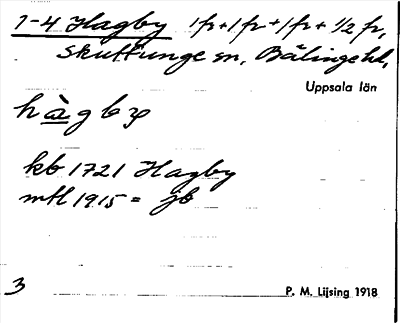 1-4 Hagby 1 fr + 1 fr + 1 fr + 1/2 fr,
Skuttunge sn, Bälinge hd,
Uppsala län
hàgby
kb 1721 Hagby
mtl 1915 = jb
3
P. M. Lijsing 1918